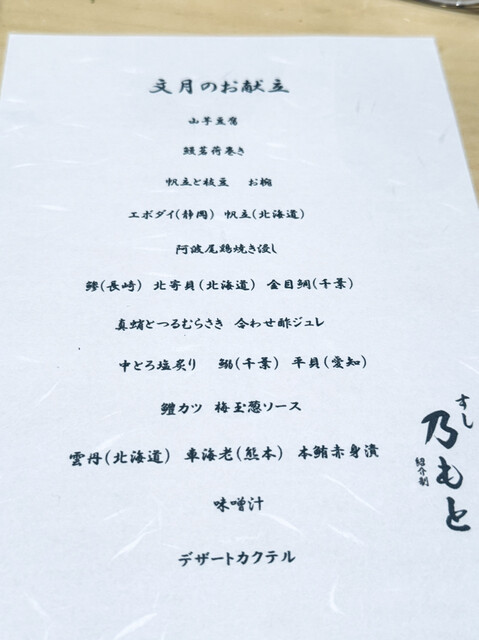 文月のお献立
山芋豆腐
鰻茗荷巻き
帆立と枝豆 お椀
エボダイ(静岡) 帆立(北海道)
阿波尾鶏焼き浸し
鯵(長崎) 北寄貝(北海道) 金目鯛(千葉)
真蛸とつるむらさき 合わせ酢ジュレ
中とろ塩炙り 鰯(千葉) 平貝(愛知)
鱧カツ 梅玉葱ソース
雲丹(北海道) 車海老(熊本) 本鮪赤身漬
味噌汁
デザートカクテル
すし
乃もと
紹介制